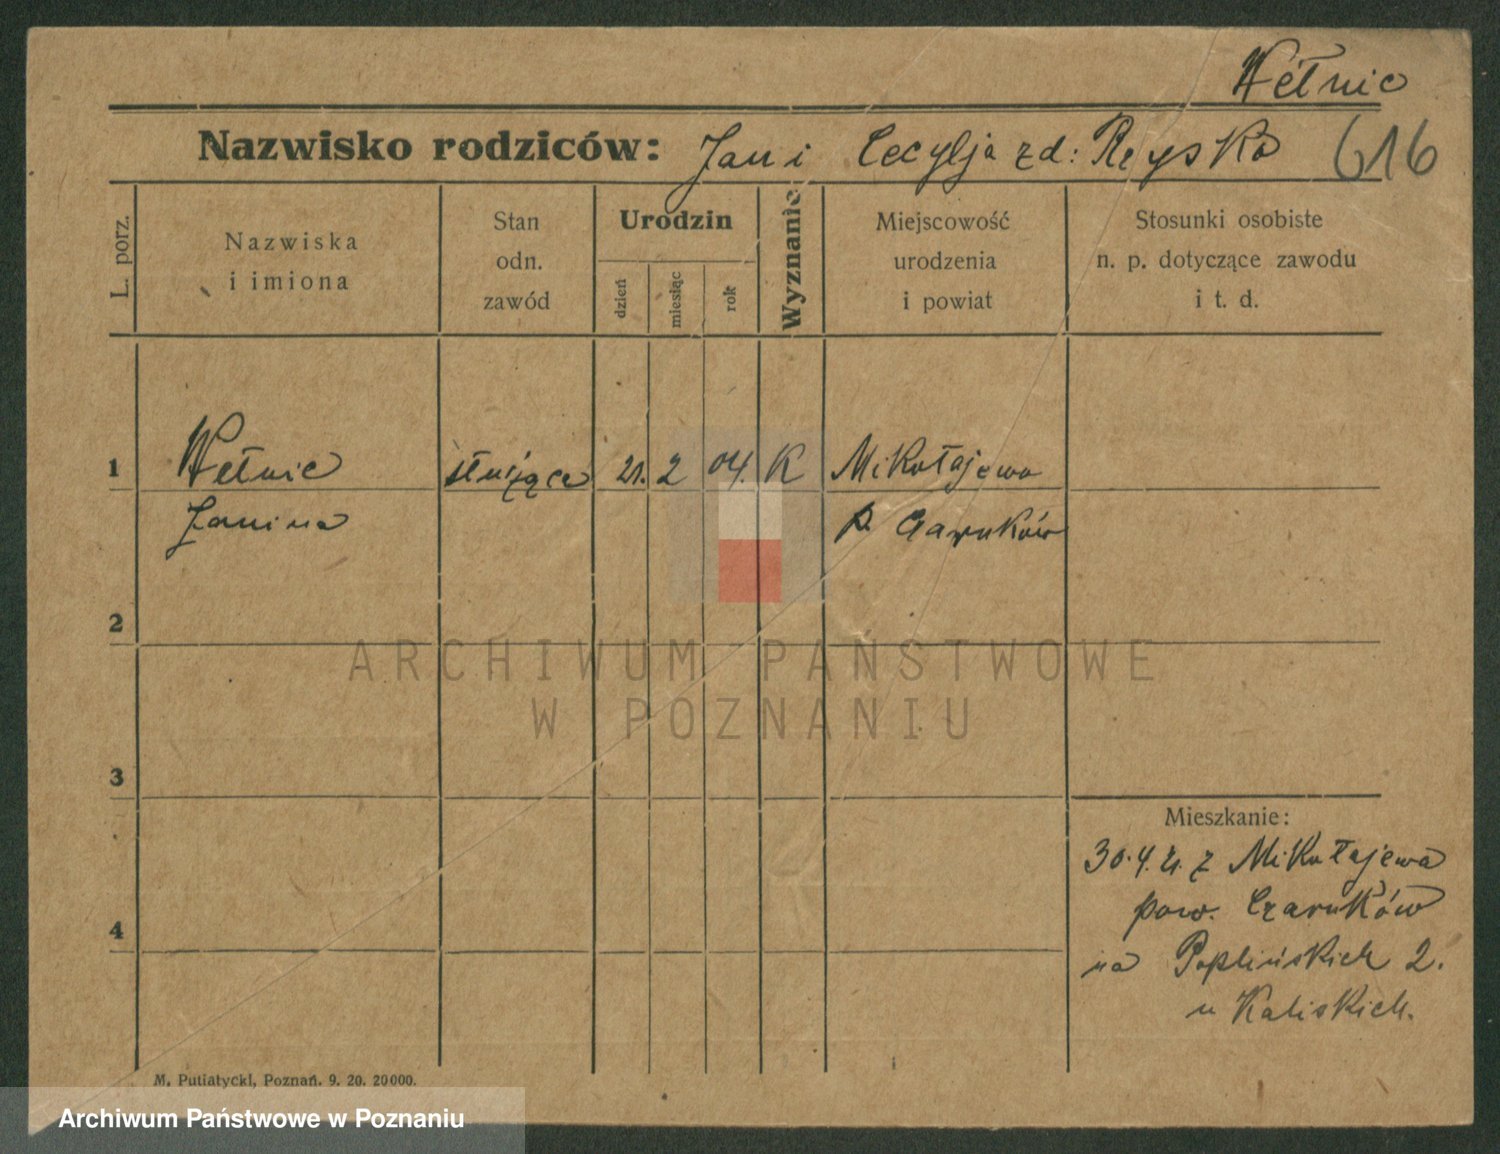 Wełnic
Nazwisko rodziców: Jan i Cecylja zd: Ryysko
616
L. porz.
Nazwiska
i imiona
Stan
odn.
zawód
Urodzin
dzień
miesiąc
rok
Wyznanie
Miejscowość
urodzenia
i powiat
Stosunki osobiste
n. p. dotyczące zawodu
i t. d.
1 Wełnic służąca 21. 2 04. K Mikołajewo
Janina p. Czarnków
2
ARCHIWUM PAŃSTWOWE
W POZNANIU
3
Mieszkanie:
30.4.21. z Mikołajewa
pow. Czarnków
4
na Poplińskich 2.
u Kaliskich.
M. Putiatycki, Poznań. 9. 20. 20000.
Archiwum Państwowe w Poznaniu